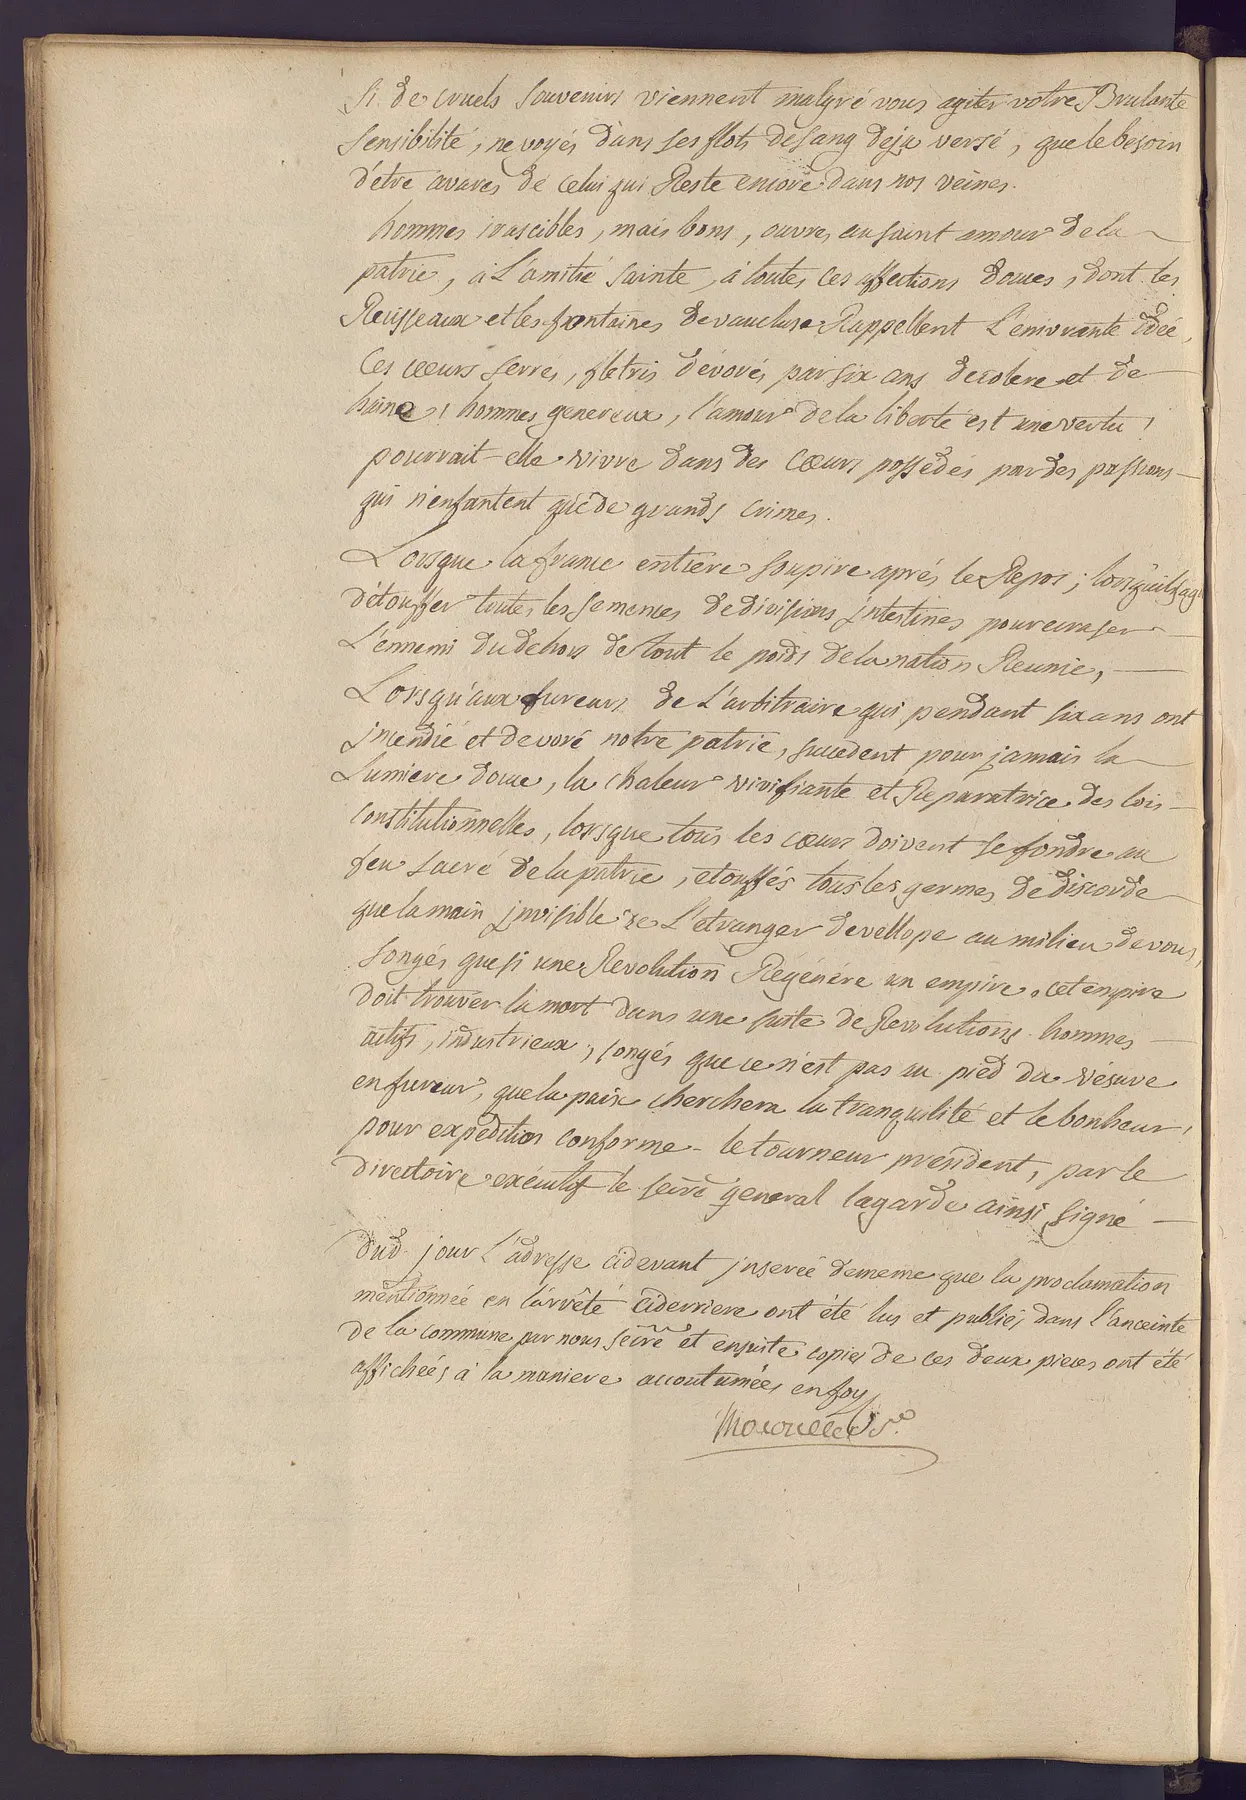 Si de cruels souvenirs viennent malgré vous agiter votre Brulante
sensibilité, ne voyés dans ses flots de sang deja versé, que le besoin
d'être avares de celui qui Reste encore dans nos veines.
hommes irascibles, mais bons, ouvres au saint amour de la
patrie, à L'amitié sainte, à toutes ces affections douces, dont les
Ruisseaux et les fontaines de vaucluse Rappellent L'enivrante idée,
Ces cœurs serrés, flétris dévorés par six ans de colere et de
haine! hommes genereux, l'amour de la liberté est une vertu!
pourrait-elle vivre dans des cœurs possédés par des passions
qui n'enfantent que de grands crimes.
Lorsque la france entiere soupire aprés le Repos; lorsqu'il sagit
d'étouffer toutes les semences de divisions jntestines pour ecraser
L'ennemi du dehors de tout le poids de la nation Reunie,
Lorsqu'aux fureurs de L'arbitraire qui pendant six ans ont
jncendié et devoré notre patrie, succedent pour jamais la
Lumiere douce, la chaleur vivifiante et Reparatrice des lois
constitutionnelles, lorsque tous les cœurs doivent se fondre au
feu sacré de la patrie, etouffés tous les germes de discorde
que la main jnvisible de L'etranger devellope au milieu de vous,
songés que si une Revolution Régénére un empire, cet empire
doit trouver la mort dans une suite de Revolutions. hommes
actifs, industrieux, songés que ce n'est pas au pied du vésuve
en fureur, que la paix cherchera la tranquilité et le bonheur!
pour expédition conforme - letourneur président, par le
directoire exécutif le seirè general lagarde ainsi signé
dud. jour l'adresse cidevant jnserée de meme que la proclamation
mentionnée en l'arrêté ciderriere ont été lus et publiés dans l'anceinte
de la commune par nous seire et ensuite copies de ces deux pieces ont été
affichées à la maniere accoutumées en foy